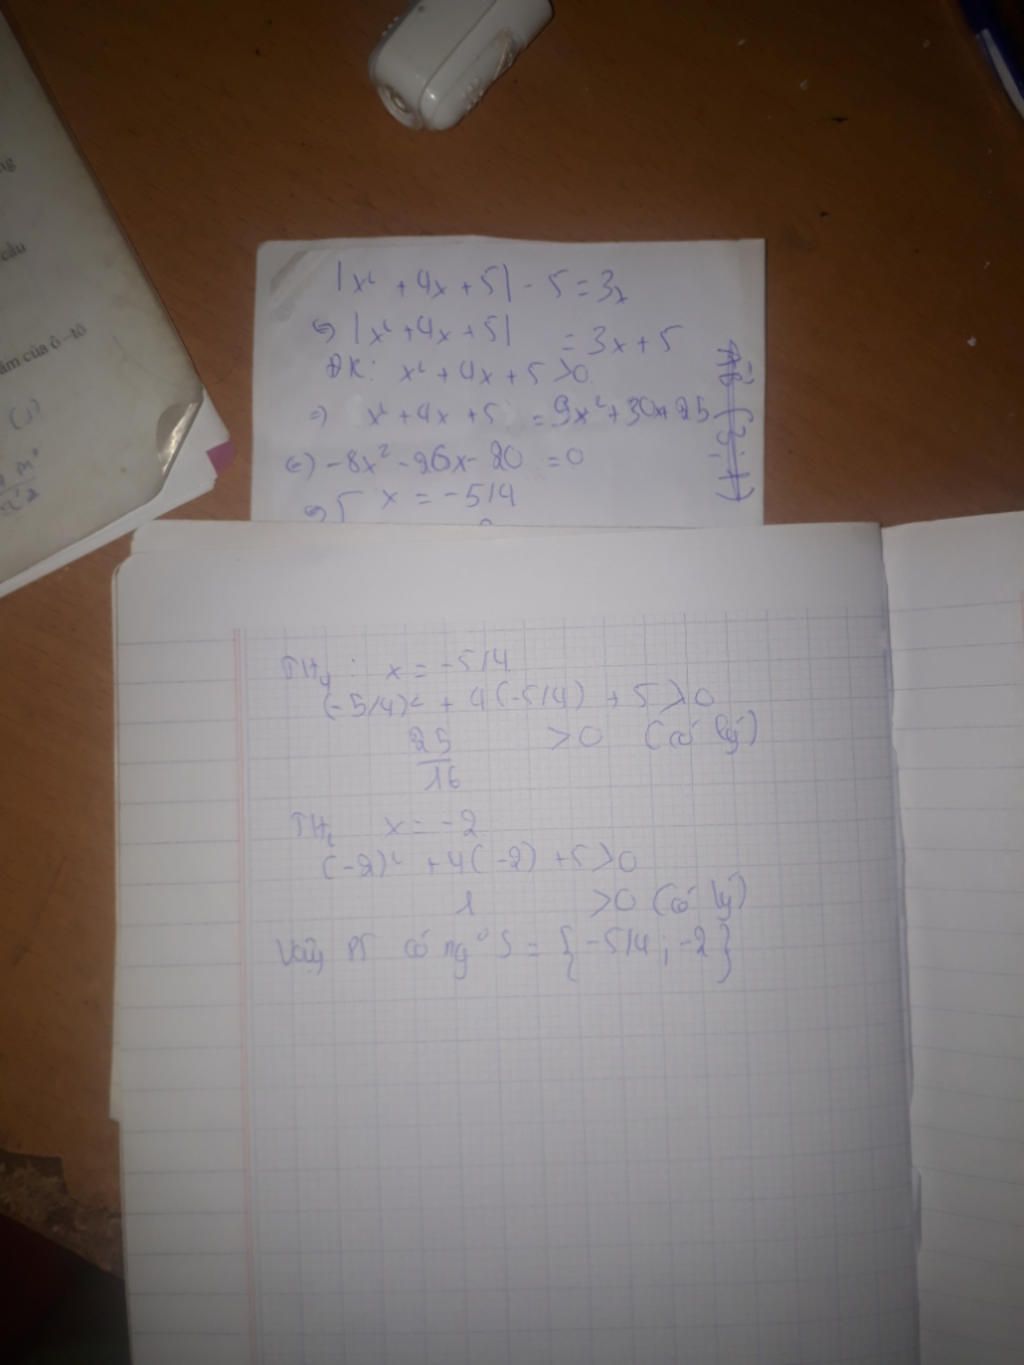 ng
cầu
âm của ô-tô
(J)
|x² + 4x + 5| - 5 = 3x
⇔ |x² + 4x + 5| = 3x + 5
ĐK: x² + 4x + 5 > 0
⇒ x² + 4x + 5 = 9x² + 30x + 25
⇔ -8x² - 26x - 20 = 0
⇔ [ x = -5/4
AB (3; -1)
TH1: x = -5/4
(-5/4)² + 4(-5/4) + 5 > 0
25/16 > 0 (có lý)
TH2 x = -2
(-2)² + 4(-2) + 5 > 0
1 > 0 (có lý)
Vậy PT có ng° S = { -5/4 ; -2 }